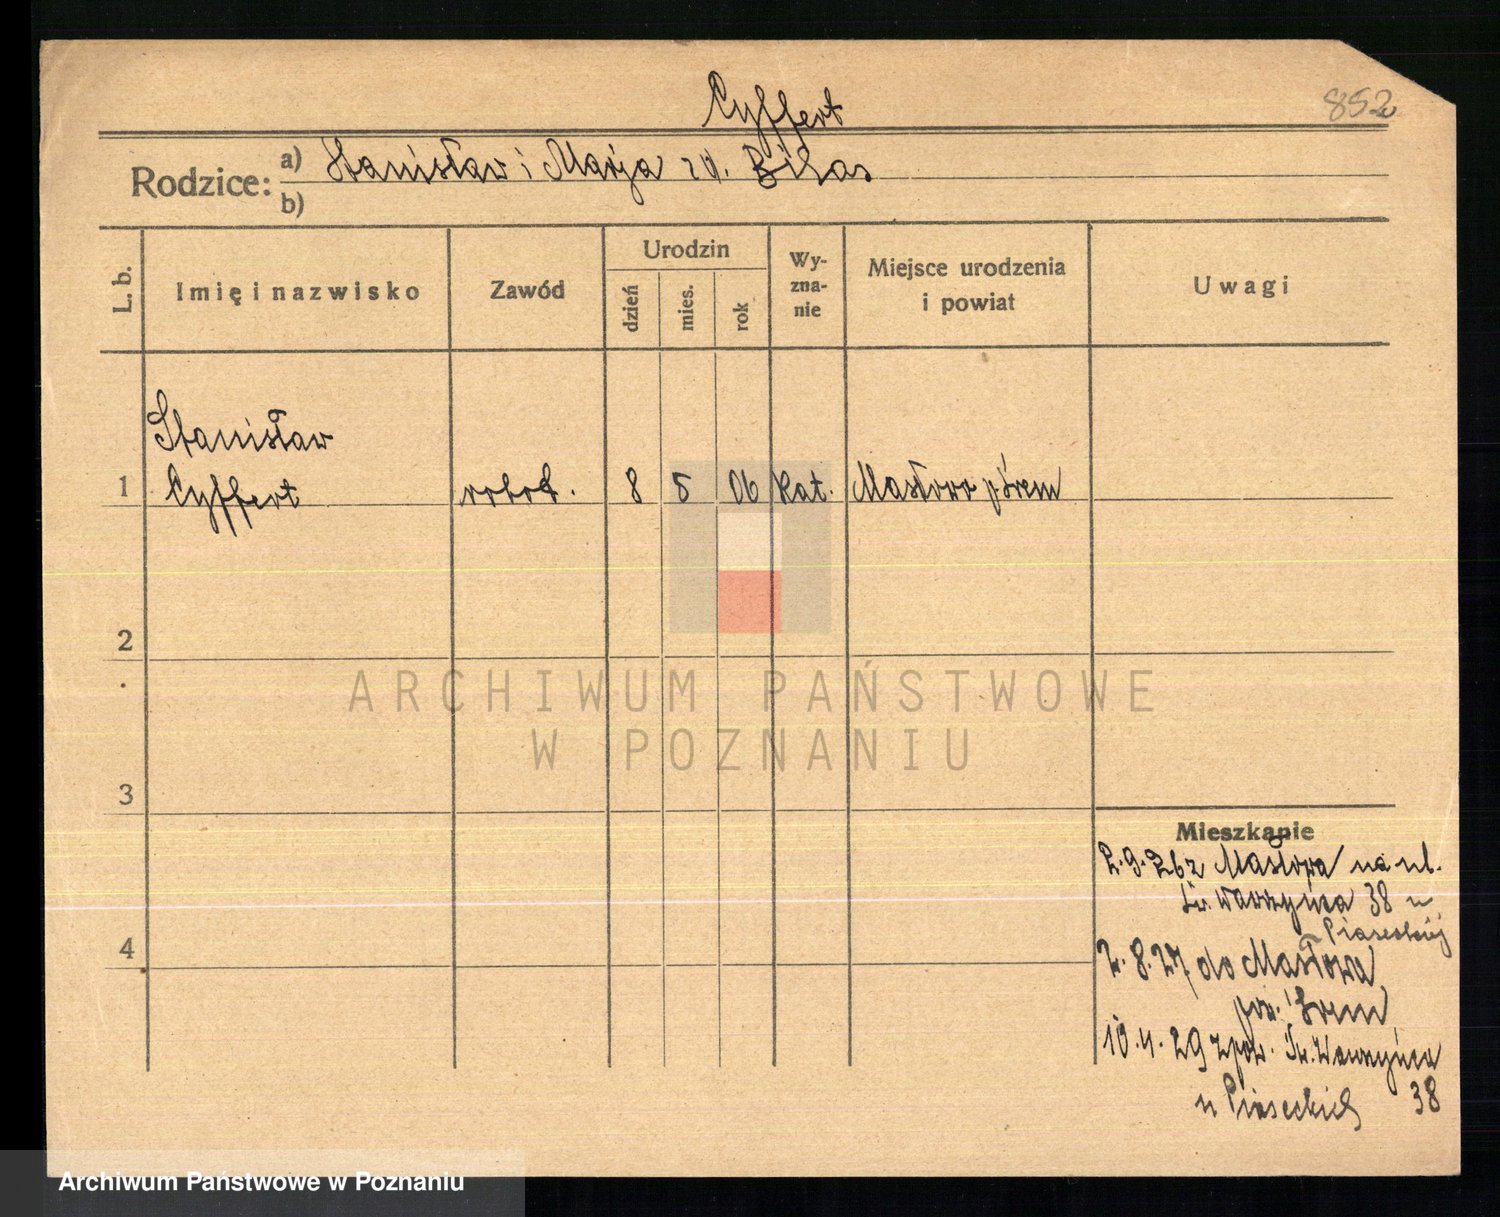 852
Cyffert
Rodzice: a) Stanisław i Marja zd.
b)
L. b. Imię i nazwisko Zawód Urodzin dzień mies. rok Wy-zna-nie Miejsce urodzenia i powiat Uwagi
Stanisław
1 Cyffert robot. 8 5 06 kat. Masłowo p Śrem
2
3
4
Mieszkanie
2.9.26 z Masłowa na ul.
Św. Wawrzyńca 38 u
Piaseckiej
2.8.27 do Masłowa
pow. Śrem
10.4.29 zpow. Św. Wawrzyńca
38
u Piaseckich
ARCHIWUM PAŃSTWOWE
W POZNANIU
Archiwum Państwowe w Poznaniu